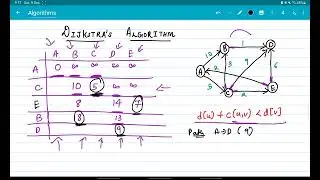 Algorithms
DIJKSTRA'S ALGORITHM
A B C D E
A 0 ∞ ∞ ∞ ∞
C 10 5 ∞ ∞
E 8 14 7
B 8 13
D 9
B 1 D
10
A 2 3 9 6
5
C 2 E
d(u) + c(u,v) < d(v)
Path A→D (9)